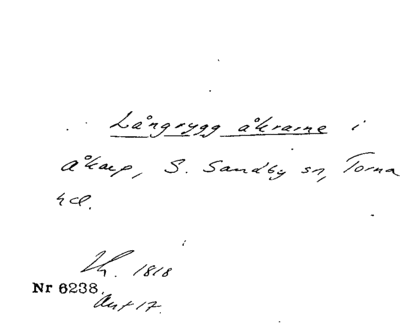 Långrygg åkrarne i
Åkarp, S. Sandby sn, Torna
hd.
Th. 1818
Nr 6238.
Ant 17.